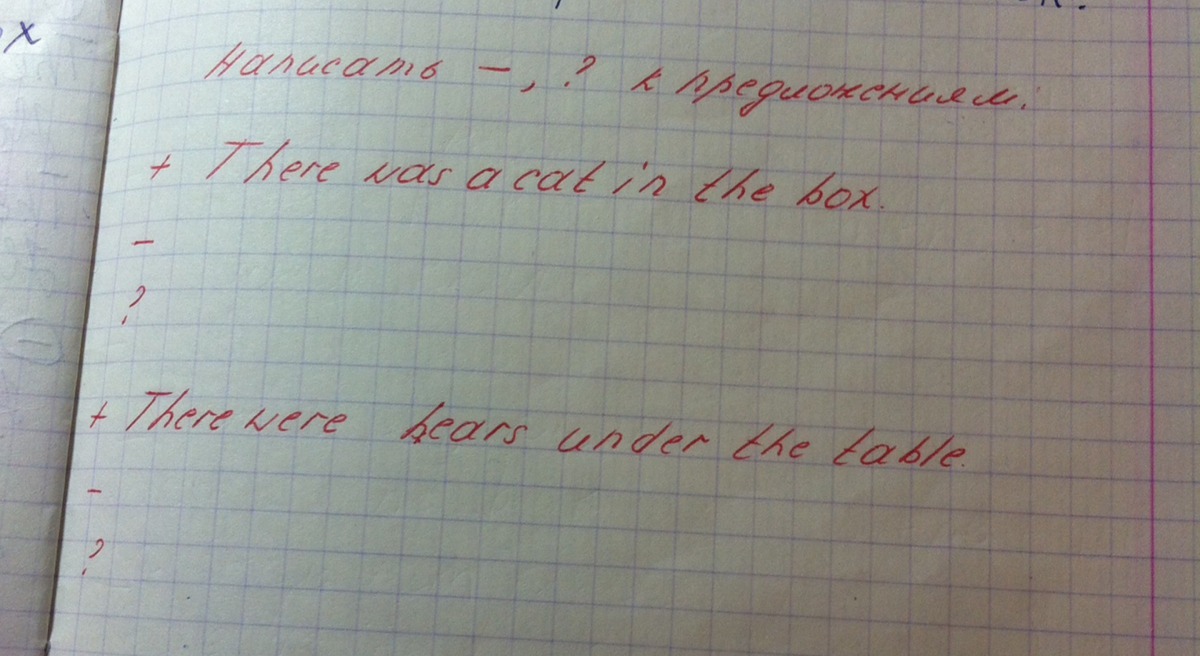 х
Написать –, ? к предложениям.
+ There was a cat in the box.
–
?
+ There were bears under the table.
-
?